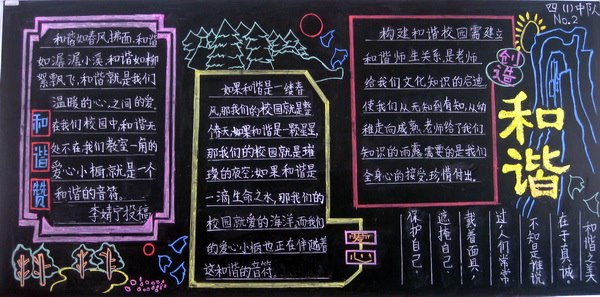 和谐如春风拂面,和谐
如潺潺小溪,和谐如柳
絮飘飞,和谐就是我们
温暖的心,之间的爱。
在我们校园中,和谐无
处不在我们教室一角的
爱心小板就是一个
和谐的音符。
李婧宁投稿
和谐赞
如果和谐是一缕春
风,那我们的校园就是整
倚天,如果和谐是一颗星星,
那我们的校园就是璀
璨的夜空;如果和谐是
一滴生命之水,那我们的
校园就爱的海洋,而我们
的爱心小板也正在伴随着
这和谐的音符.
爱心
构建和谐校园需建立
和谐师生关系,是老师
给我们文化知识的启迪,
使我们从无知到有知,从幼
稚走向成熟,老师给了我们
知识的雨露需要的是我们
全身心的接受,珍惜付出。
创造
四(1)中队
No.2
和谐
和谐之美
在于真诚。
不知是谁说
过,人们常常
戴着面具,
遮掩自己,
保护自己。